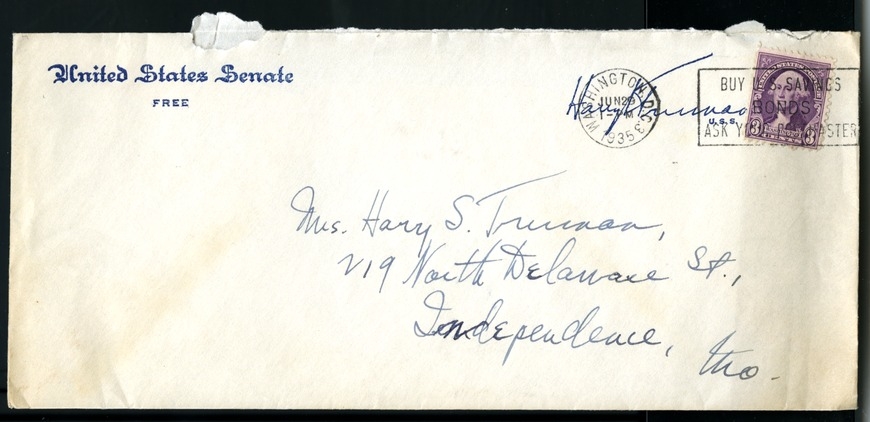 United States Senate
FREE
Harry S Truman
U.S.S.
WASHINGTON, D.C.
JUN 29
1935
BUY U.S. SAVINGS
BONDS
ASK YOUR POSTMASTER
3 3
Mrs. Harry S. Truman,
219 North Delaware St.,
Independence,
Mo.